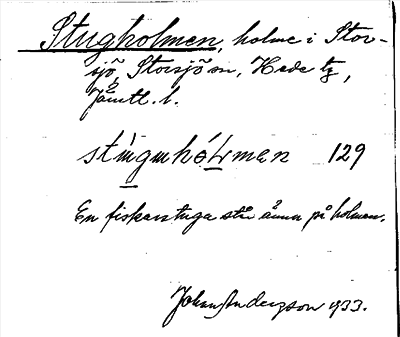 Stugholmen, holme i Stor-
sjö, Storsjö sn, Hede tg,
Jämtl. l.
stúguhólmen 129
En fiskarstuga står ännu på holmen.
Johan Anderzson 1933.